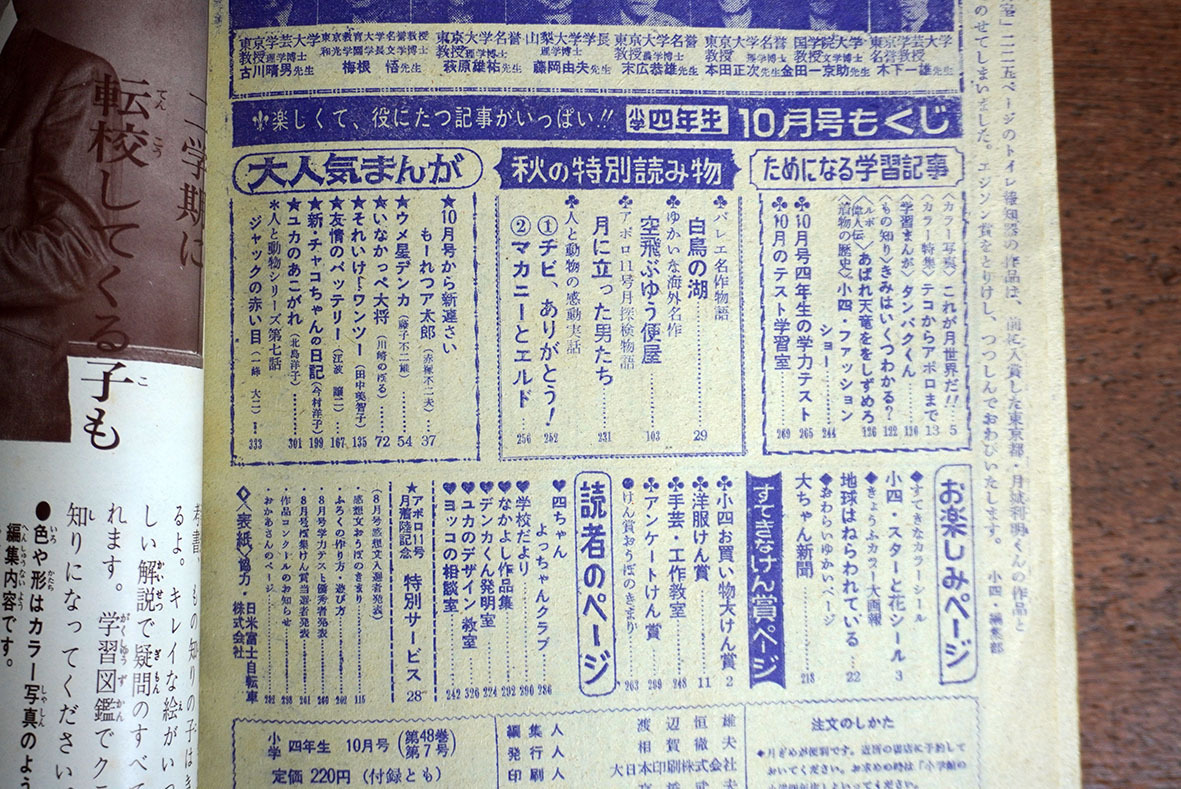 東京学芸大学教授理学博士 古川晴男先生
東京教育大学名誉教授和光学園学長文学博士 梅根 悟先生
東京大学名誉教授理学博士 萩原雄祐先生
山梨大学学長理学博士 藤岡由夫先生
東京大学名誉教授農学博士 末広恭雄先生
東京大学名誉教授理学博士 本田正次先生
国学院大学教授文学博士 金田一京助先生
東京学芸大学名誉教授 木下一雄先生
楽しくて、役にたつ記事がいっぱい!! 小学四年生 10月号もくじ
ためになる学習記事
〈カラー写真〉これが月世界だ!!……5
〈カラー特集〉テコからアポロまで 13
学習まんが タンパクくん……116
〈もの知り〉きみはいくつわかる? 122
〈偉人伝〉あばれ天竜ををしずめろ 126
〈着物の歴史〉小四・ファッションショー……244
♣10月号四年生の学力テスト 265
♣10月のテスト学習室……269
秋の特別読み物
♣バレエ名作物語
白鳥の湖……29
♣ゆかいな海外名作
空飛ぶゆう便屋……103
♣アポロ11号月探検物語
月に立った男たち……231
♣人と動物の感動実話
①チビ、ありがとう! 252
②マカニーとエルド 256
大人気まんが
★10月号から新連さい
もーれつア太郎(赤塚不二夫) 37
★ウメ星デンカ(藤子不二雄) 54
★いなかっぺ大将(川崎のぼる) 72
★それいけ!ワンツー(田中美智子) 135
★友情のバッテリー(江波 譲二) 167
★新・チャコちゃんの日記(今村洋子) 199
★ユカのあこがれ(北島洋子) 301
★人と動物シリーズ第七話
ジャックの赤い目(一峰 大二) 333
お楽しみページ
◆すてきなカラーシール
小四・スターと花シール 3
◆きょうふカラー大画報
地球はねらわれている 22
◆おわらいゆかいページ
大ちゃん新聞……218
すてきなけん賞ページ
♣小四お買い物大けん賞 2
♣洋服けん賞……11
♣手芸・工作教室……248
♣アンケートけん賞……299
●けん賞おうぼのきまり……263
読者のページ
♥四ちゃん よっちゃんクラブ 286
♥学校だより……290
♥なかよし作品集……292
♥デンカくん発明室……224
♥ユカのデザイン教室 326
♥ヨッコの相談室……242
★アポロ11号月着陸記念 特別サービス 28
(8月号感想文入選者発表)
・感想文おうぼのきまり……115
・ふろくの作り方・遊び方……202
・8月号学力テスト優秀者発表
・8月号ぼ集けん賞当選者発表
・作品コンクールのお知らせ
・おかあさんのページ
◇〈表紙〉協力・日米富士自転車株式会社
小学四年生 10月号 (第48巻 第7号)
定価 220円 (付録とも)
編集人 渡辺恒雄
発行人 相賀徹夫
印刷人 大日本印刷株式会社
注文のしかた
◆月ぎめが便利です。近所の書店に予約して
おいてください。お求めの時は「小学館の
室」二二五ページのトイレ報知器の作品は、前に入賞した東京都・月城利明くんの作品と
のせてしまいました。エジソン賞をとりけし、つつしんでおわびいたします。 小四・編集部
二学期に
転校してくる子も
るよ。キレイな絵がいっ
しい解説で疑問のすべて
れます。学習図鑑でク
知りになってください
●色や形はカラー写真のよう
編集内容です。